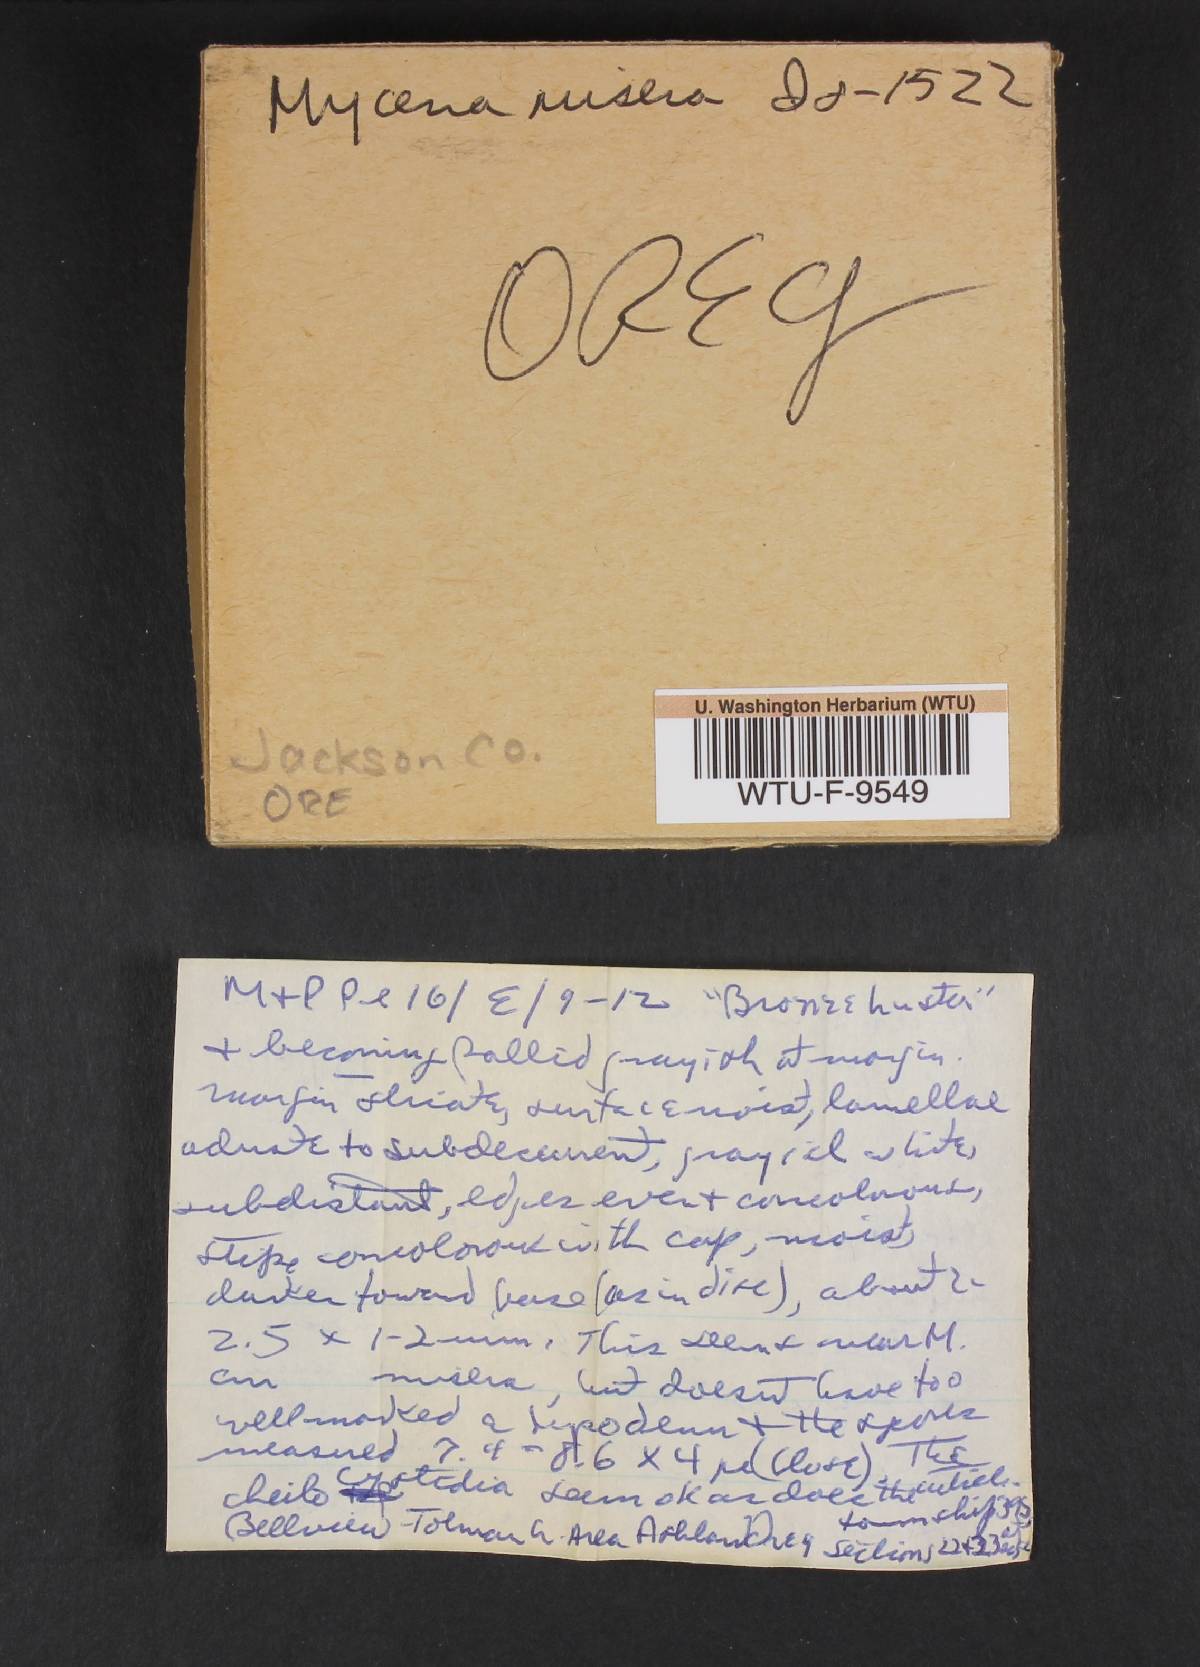 Mycena misera Ds-1522
OREG
Jackson Co.
ORE
U. Washington Herbarium (WTU)
WTU-F-9549
M+P Pl 16/ E/ 9-12 "Bronze luster"
+ becoming pallid grayish at margin.
margin striate, surface moist, lamellae
adnate to subdecurrent, grayish white,
subdistant, edges even + concolorous,
stipe concolorous with cap, moist,
darker toward base (as in disc), about 2-
2.5 x 1-2 mm. This seems near M.
misera, but doesn't have too
well marked a hypoderm + the spores
measured 7.4-8.6 x 4 µ (close). The
cheilocystidia seem ok as does the cuticle.
Bellview-Tolman Cr. Area Ashland Oreg township 39S,
sections 22+23